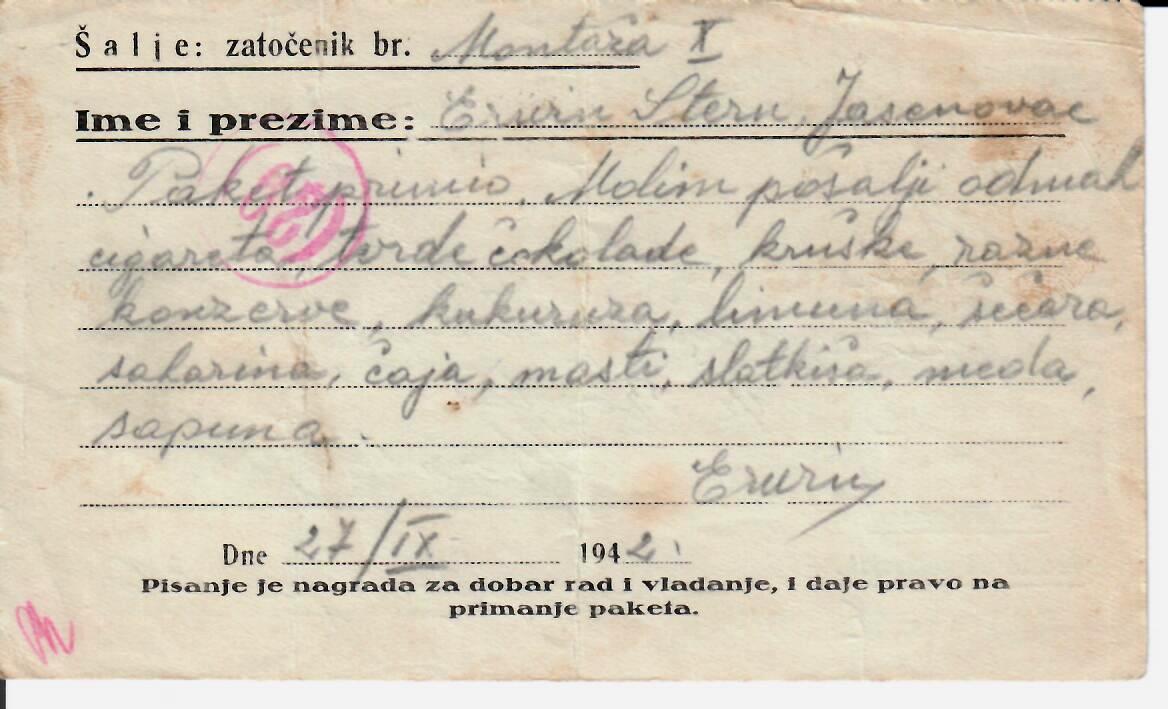 Šalje: zatočenik br. Montaža X
Ime i prezime: Erwin Stern, Jasenovac
Paket primio. Molim pošalji odmah
cigareta, tvrde čokolade, kruške, razne
konzerve, kukuruza, limuna, šećera,
saharina, čaja, masti, slatkiša, meda,
sapuna.
Erwin
Dne 27/IX 1942.
Pisanje je nagrada za dobar rad i vladanje, i daje pravo na
primanje paketa.